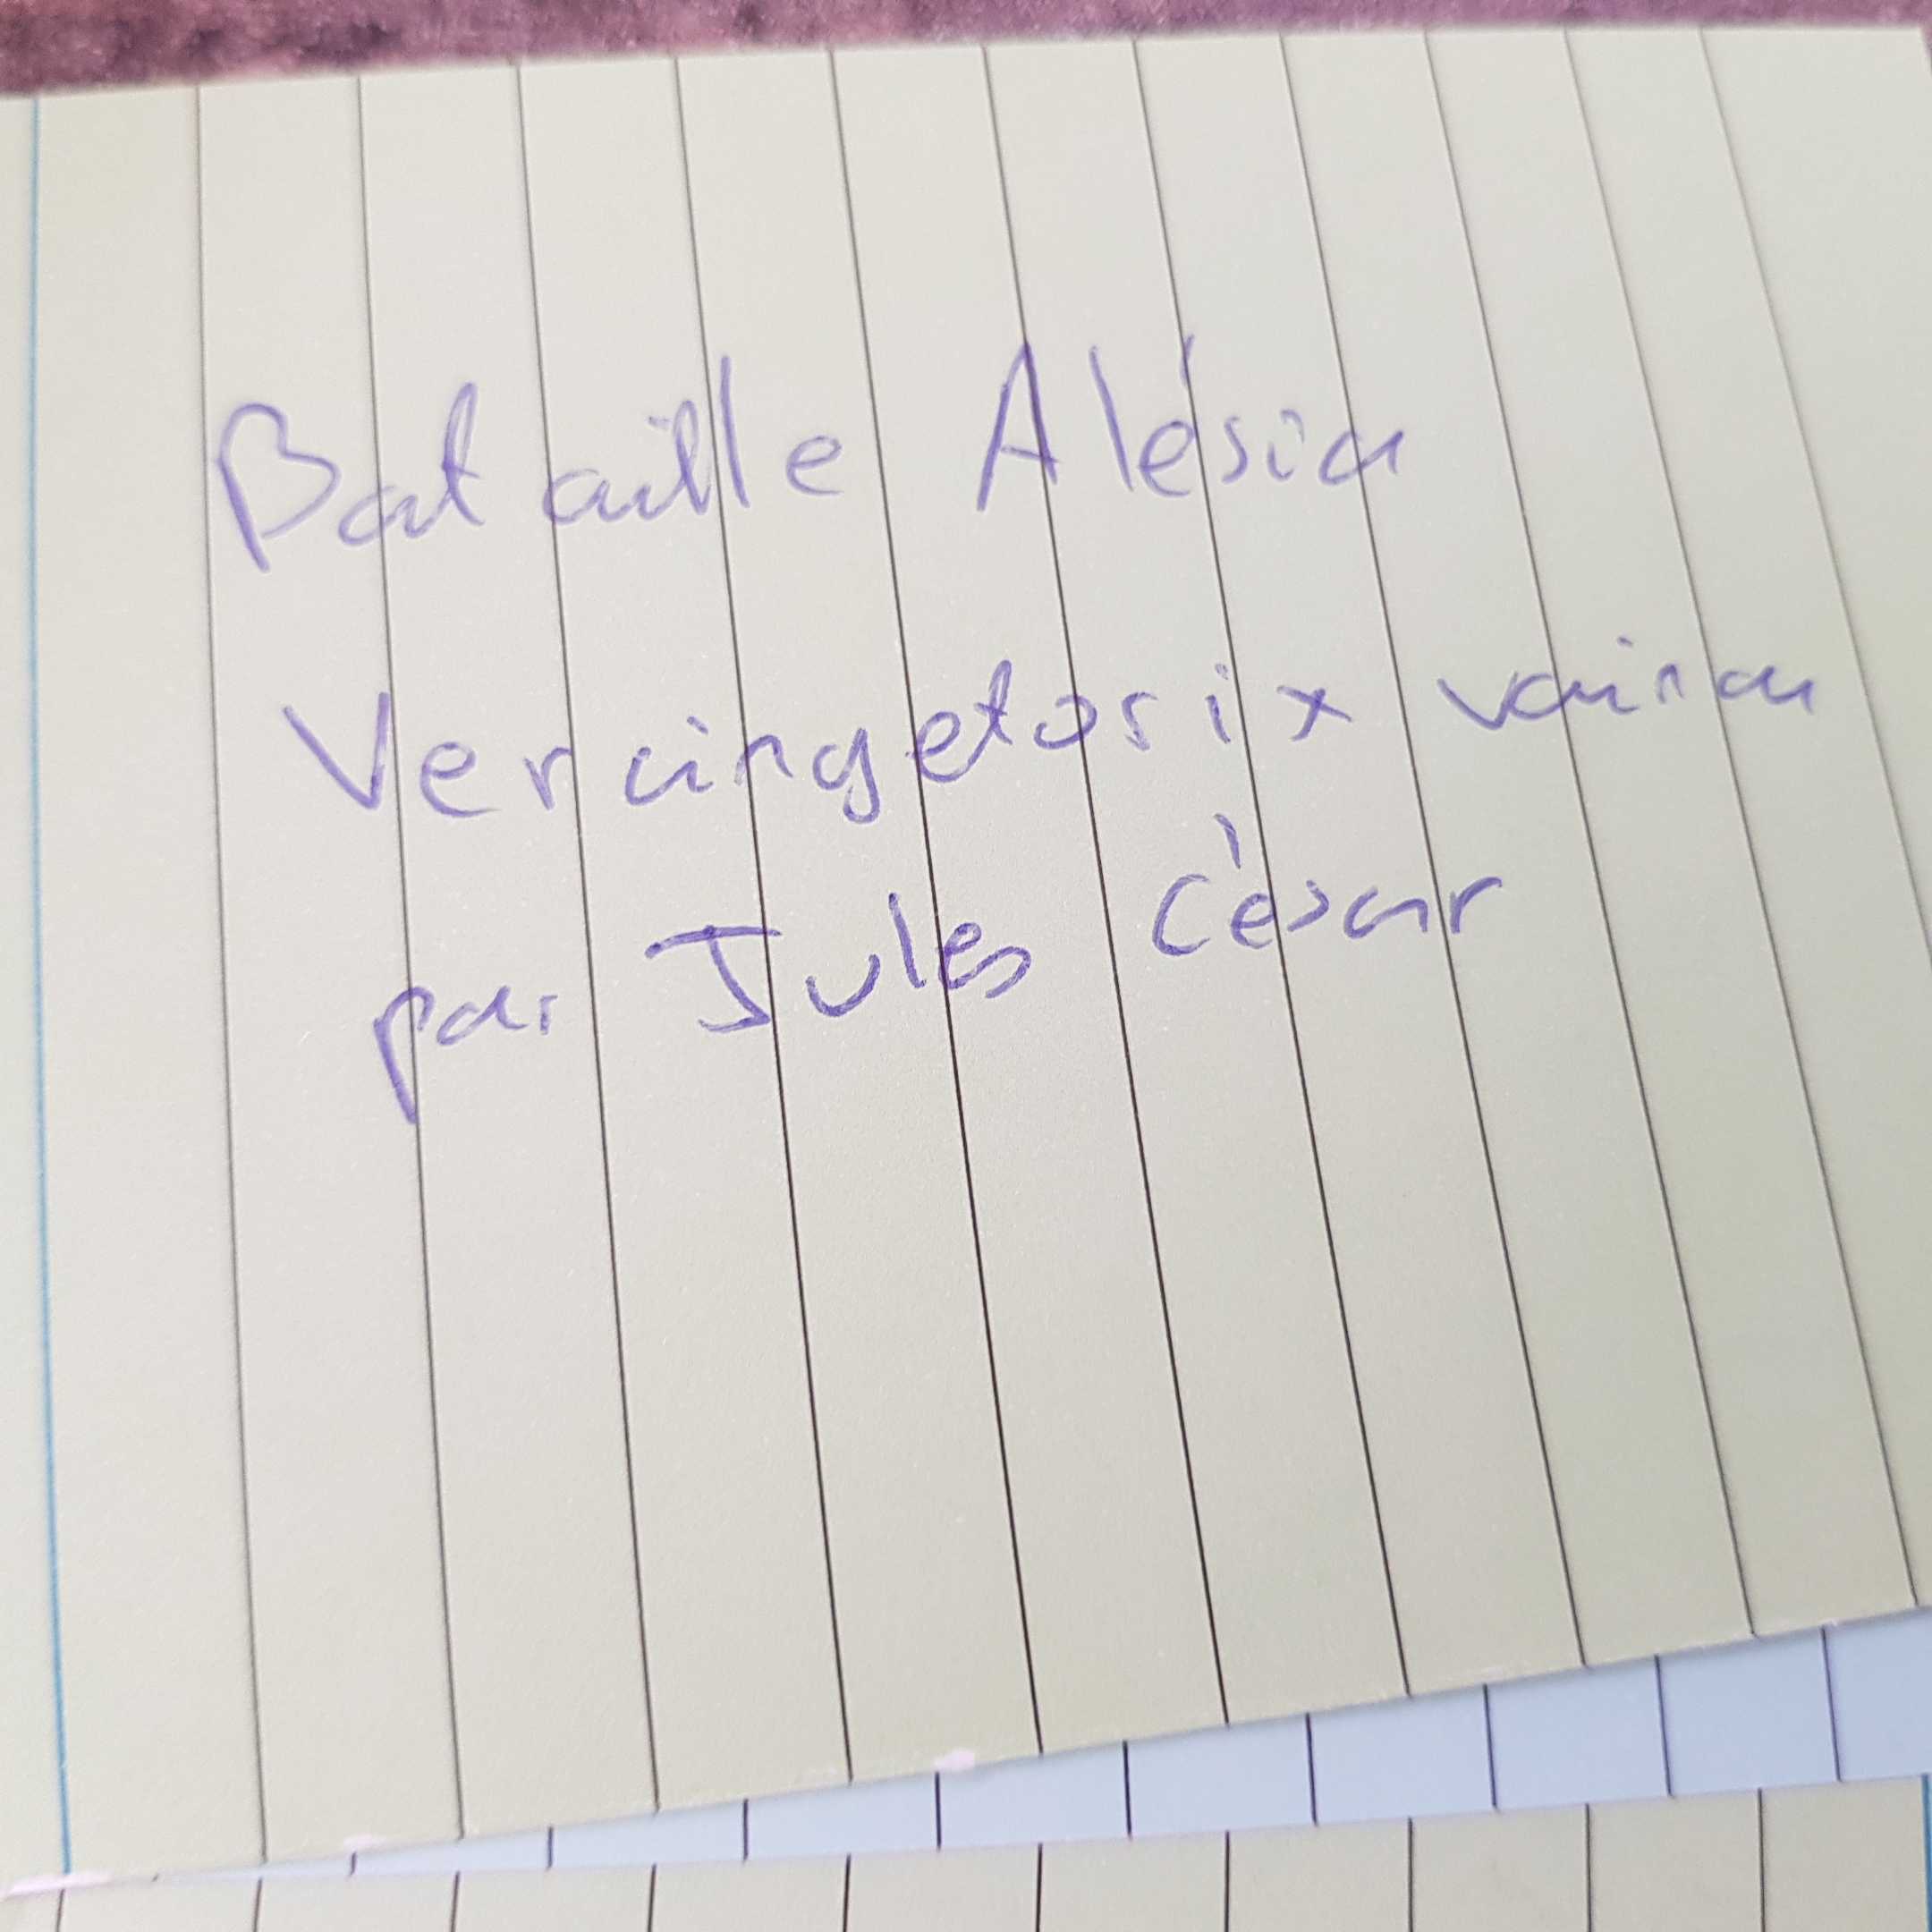 Bataille Alésia
Vercingetorix vaincu
par Jules César